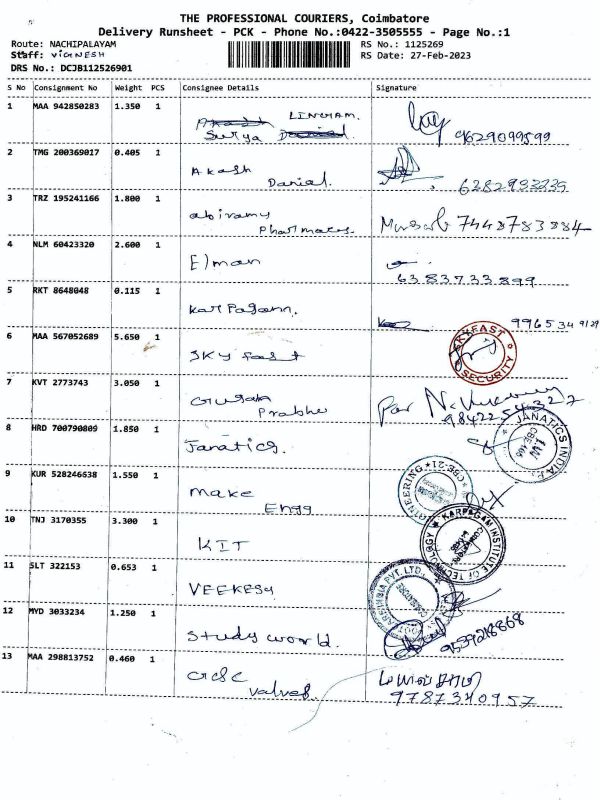 THE PROFESSIONAL COURIERS, Coimbatore
Delivery Runsheet - PCK - Phone No.:0422-3505555 - Page No.:1
Route: NACHIPALAYAM
RS No.: 1125269
Staff: VIGNESH
RS Date: 27-Feb-2023
DRS No.: DCJB112526901
S No Consignment No Weight PCS Consignee Details Signature
1 MAA 942850283 1.350 1 LINGHAM.
Surya
9629099599
2 TMG 200369017 0.405 1 Akash
Danial.
6282933235
3 TRZ 195241166 1.800 1 abiramy
Pharmacy. 7448783384
4 NLM 60423320 2.600 1 Elman
6383733899
5 RKT 8648048 0.115 1 Karpagam.
996534 9129
6 MAA 567052689 5.650 1 SKY fast
SKYFAST SECURITY
7 KVT 2773743 3.050 1
Prabhu 9842254327
8 HRD 700790809 1.850 1 Janatics.
JANATICS INDIA
9 KUR 528246638 1.550 1 make
Engg
10 TNJ 3170355 3.300 1 KIT
KARPAGAM INSTITUTE OF TECHNOLOGY
11 SLT 322153 0.653 1 VEEKESY
12 MYD 3033234 1.250 1 Study world.
9539218868
13 MAA 298813752 0.460 1
valves.
9787340957